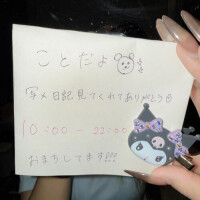 ことだよ
写メ日記見てくれてありがとう
10:00 - 22:00
おまちしてます!!!